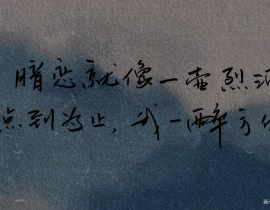 暗恋就像一壶烈酒
点到为止,我一醉方休